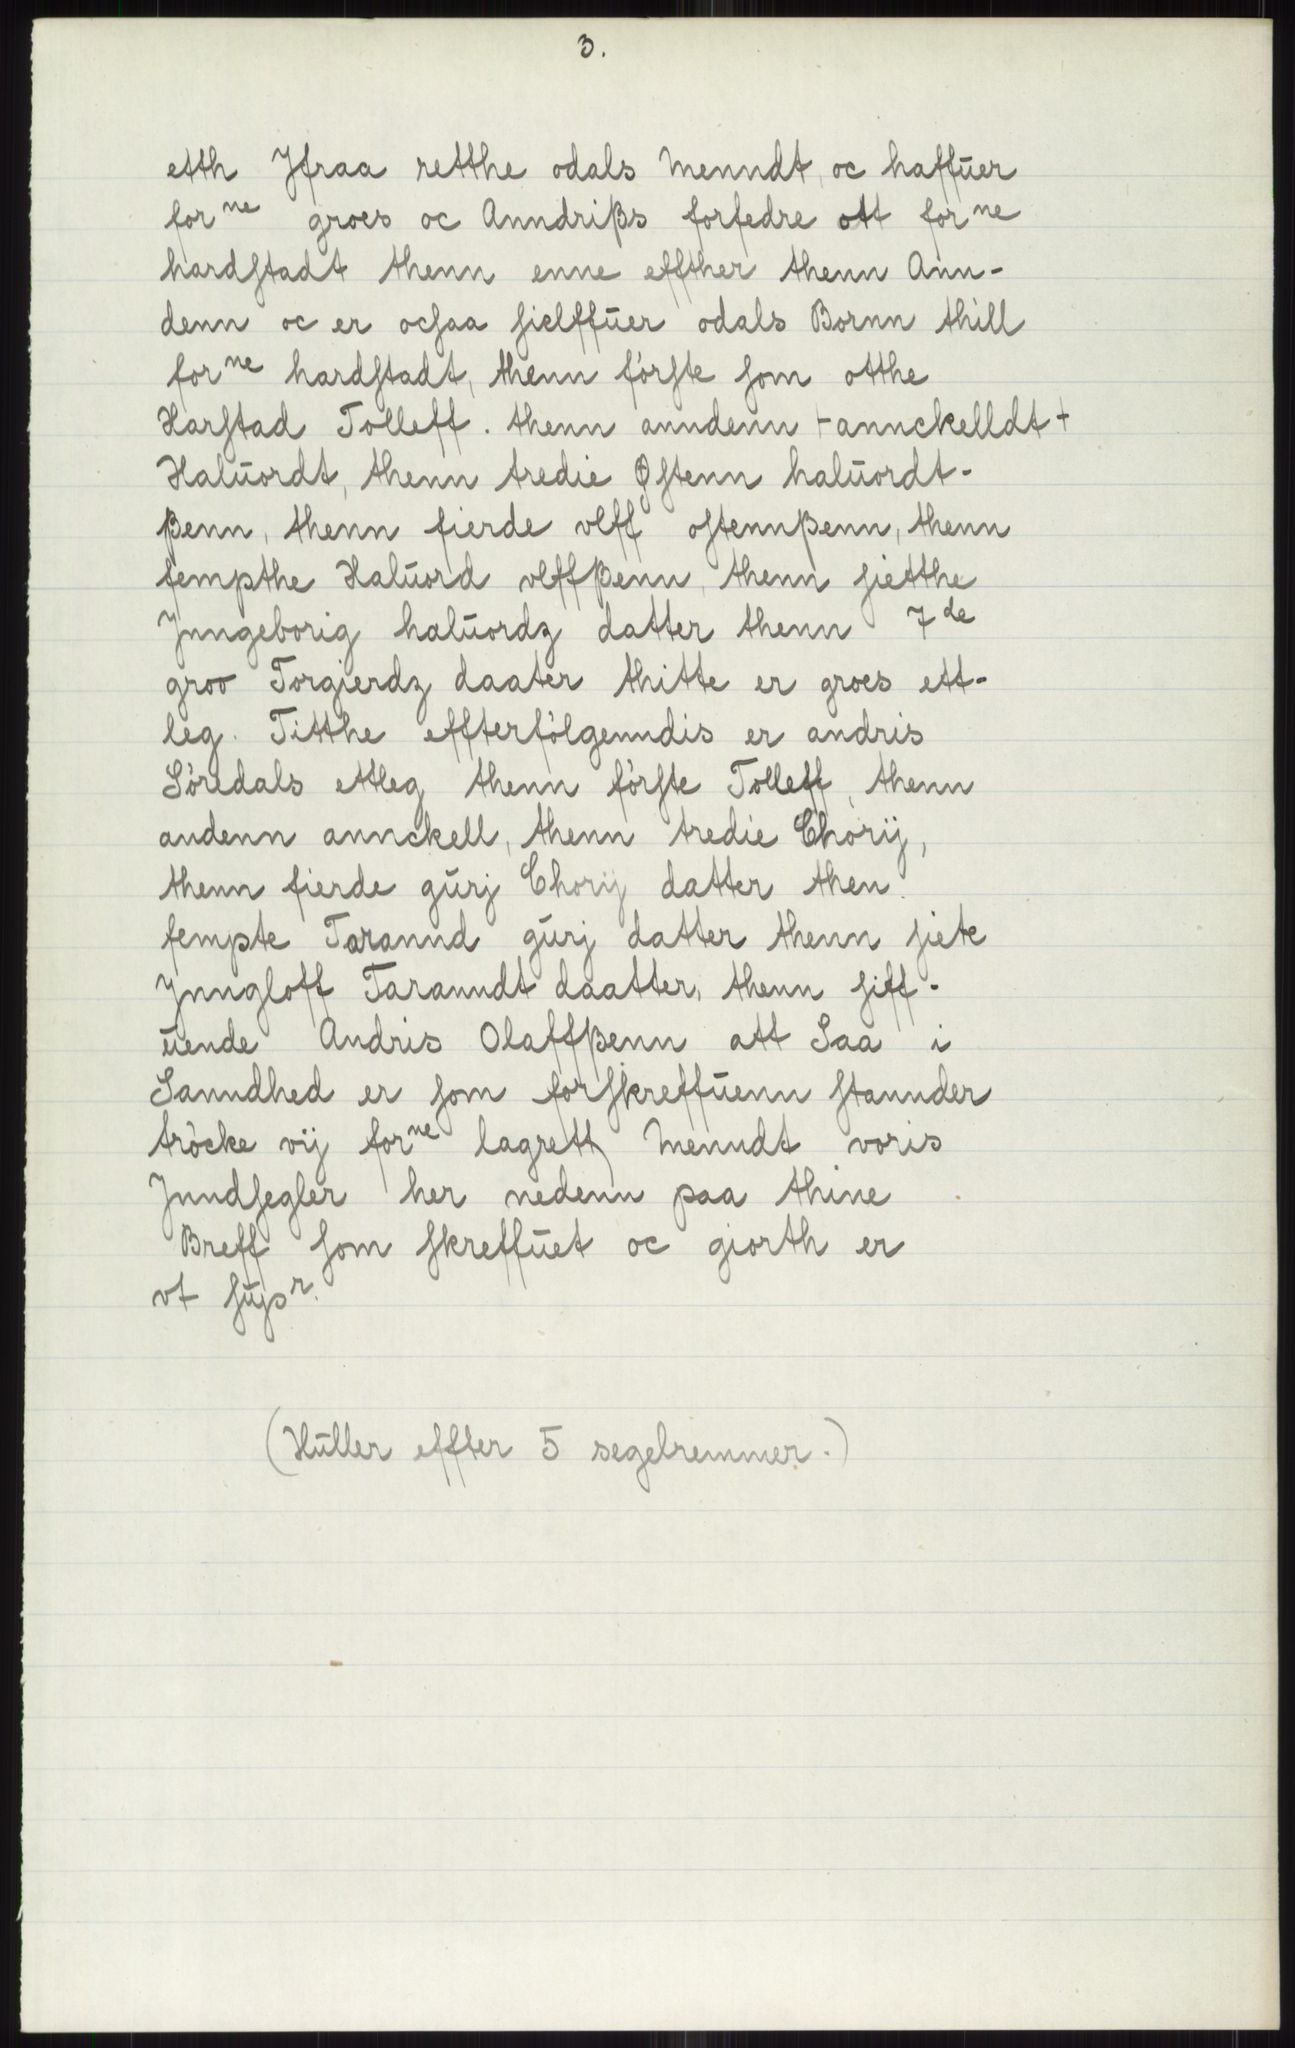 3.
etth Jfraa retthe odals Menndt, oc haffuer
for ne groes oc Anndriβs forfedre ott for ne
hardstadt thenn enne effther thenn Ann-
denn oc er ocsaa sielffuer odals Bornn thill
for ne hardstadt, thenn förste som otthe
Harstad Tolleff. thenn anndenn +annckelldt+
Haluordt, thenn tredie Østenn haluordt-
βenn, thenn fierde vlff ostennβenn, thenn
fempthe Haluord vlffβenn, thenn siette
Jnngeborig haluordz datter thenn 7de
groo Torgierdz daater thitte er groes ett-
leg. Titthe effterfölgenndis er andris
Söredals ettleg thenn förste Tolleff, thenn
andenn annckell, thenn tredie Chorij,
thenn fierde gurj Chorij datter then
fempte Tarannd gurj datter thenn siete
Jnngloff Taranndt daatter, thenn siff-
uende Andris Olaffβenn att Saa i
Sanndhed er som forskreffuenn stannder
tröcke vij for ne lagrett Menndt voris
Jnndsegler her nedenn paa thine
Breff som skreffuet oc giorth er
vt sups r.
(Huller effter 5 segelremmer.)